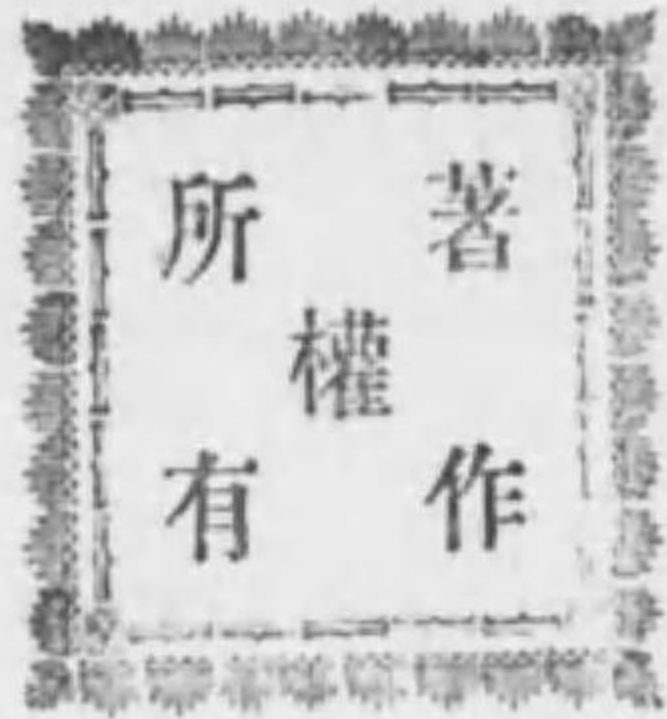 著作
權
所有